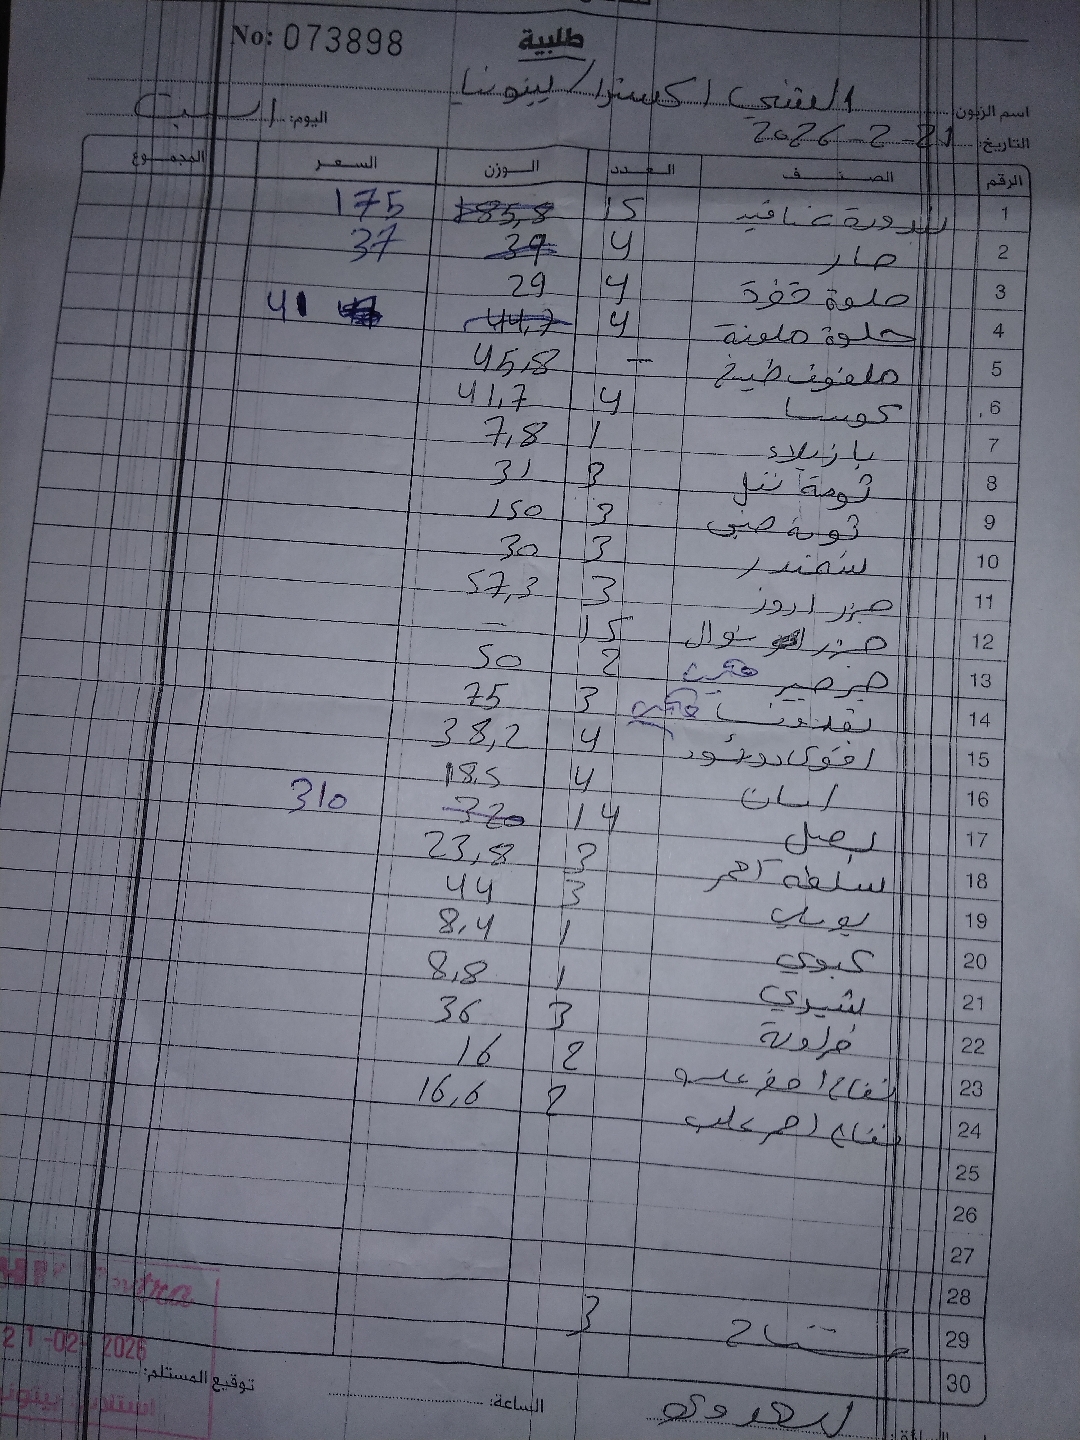 No: 073898
طلبية
اسم الزبون: العتني اكسترا / بينونا
التاريخ: 21-2-2026 اليوم: السبت
الرقم الصنف العدد الوزن السعر المجموع
1 بندورة عناقيد 15 185,8 175
2 حار 4 39 37
3 حلوة خضرة 4 29
4 حلوة ملونة 4 44,7 41
5 ملفوف طبيخ - 45,8
6 كوسا 4 41,7
7 بازيلاء 1 7,8
8 ثومة تنل 3 31
9 ثومة صيني 3 150
10 شمندر 3 30
11 جزر اروز 3 57,3
12 جزر شوال 15 -
13 جرجير 2 50
14 بقدونسا 3 75
15 افوكادو 4 38,2
16 4 18,5
17 بصل 14 320 310
18 سلطة احمر 3 23,8
19 بوملي 3 44
20 كيوي 1 8,4
21 شيري 1 8,8
22 فراولة 3 36
23 تفاح اخضر علب 2 16
24 تفاح احمر علب 2 16,6
25
26
27
28
29 مشتاح 3
30
21-02-2026
توقيع المستلم: الساعة: